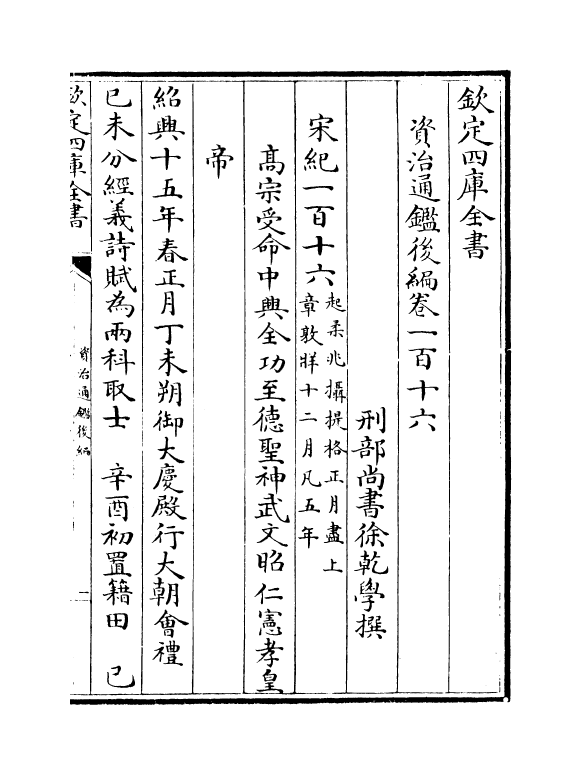 欽定四庫全書
資治通鑑後編卷一百十六
刑部尚書徐乾學撰
宋紀一百十六起柔兆攝提格正月盡上
章敦牂十二月凡五年
高宗受命中興全功至德聖神武文昭仁憲孝皇
帝
紹興十五年春正月丁未朔御大慶殿行大朝會禮
己未分經義詩賦為兩科取士　辛酉初置籍田　己
欽定四庫全書
資治通鑑後編